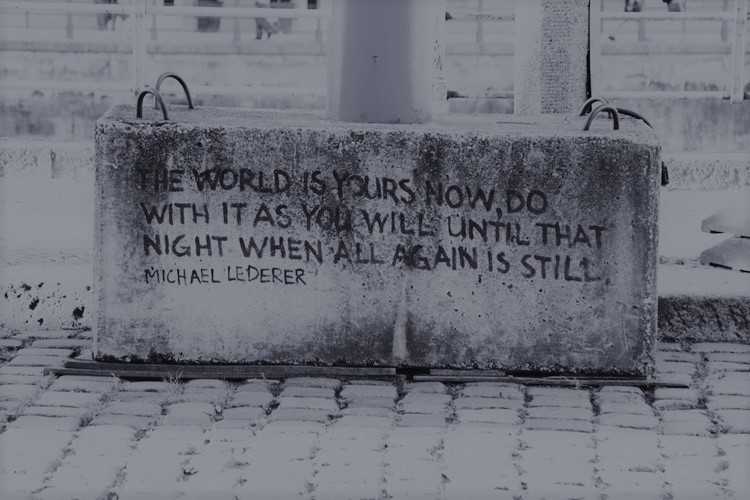 THE WORLD IS YOURS NOW, DO
WITH IT AS YOU WILL UNTIL THAT
NIGHT WHEN ALL AGAIN IS STILL.
MICHAEL LEDERER